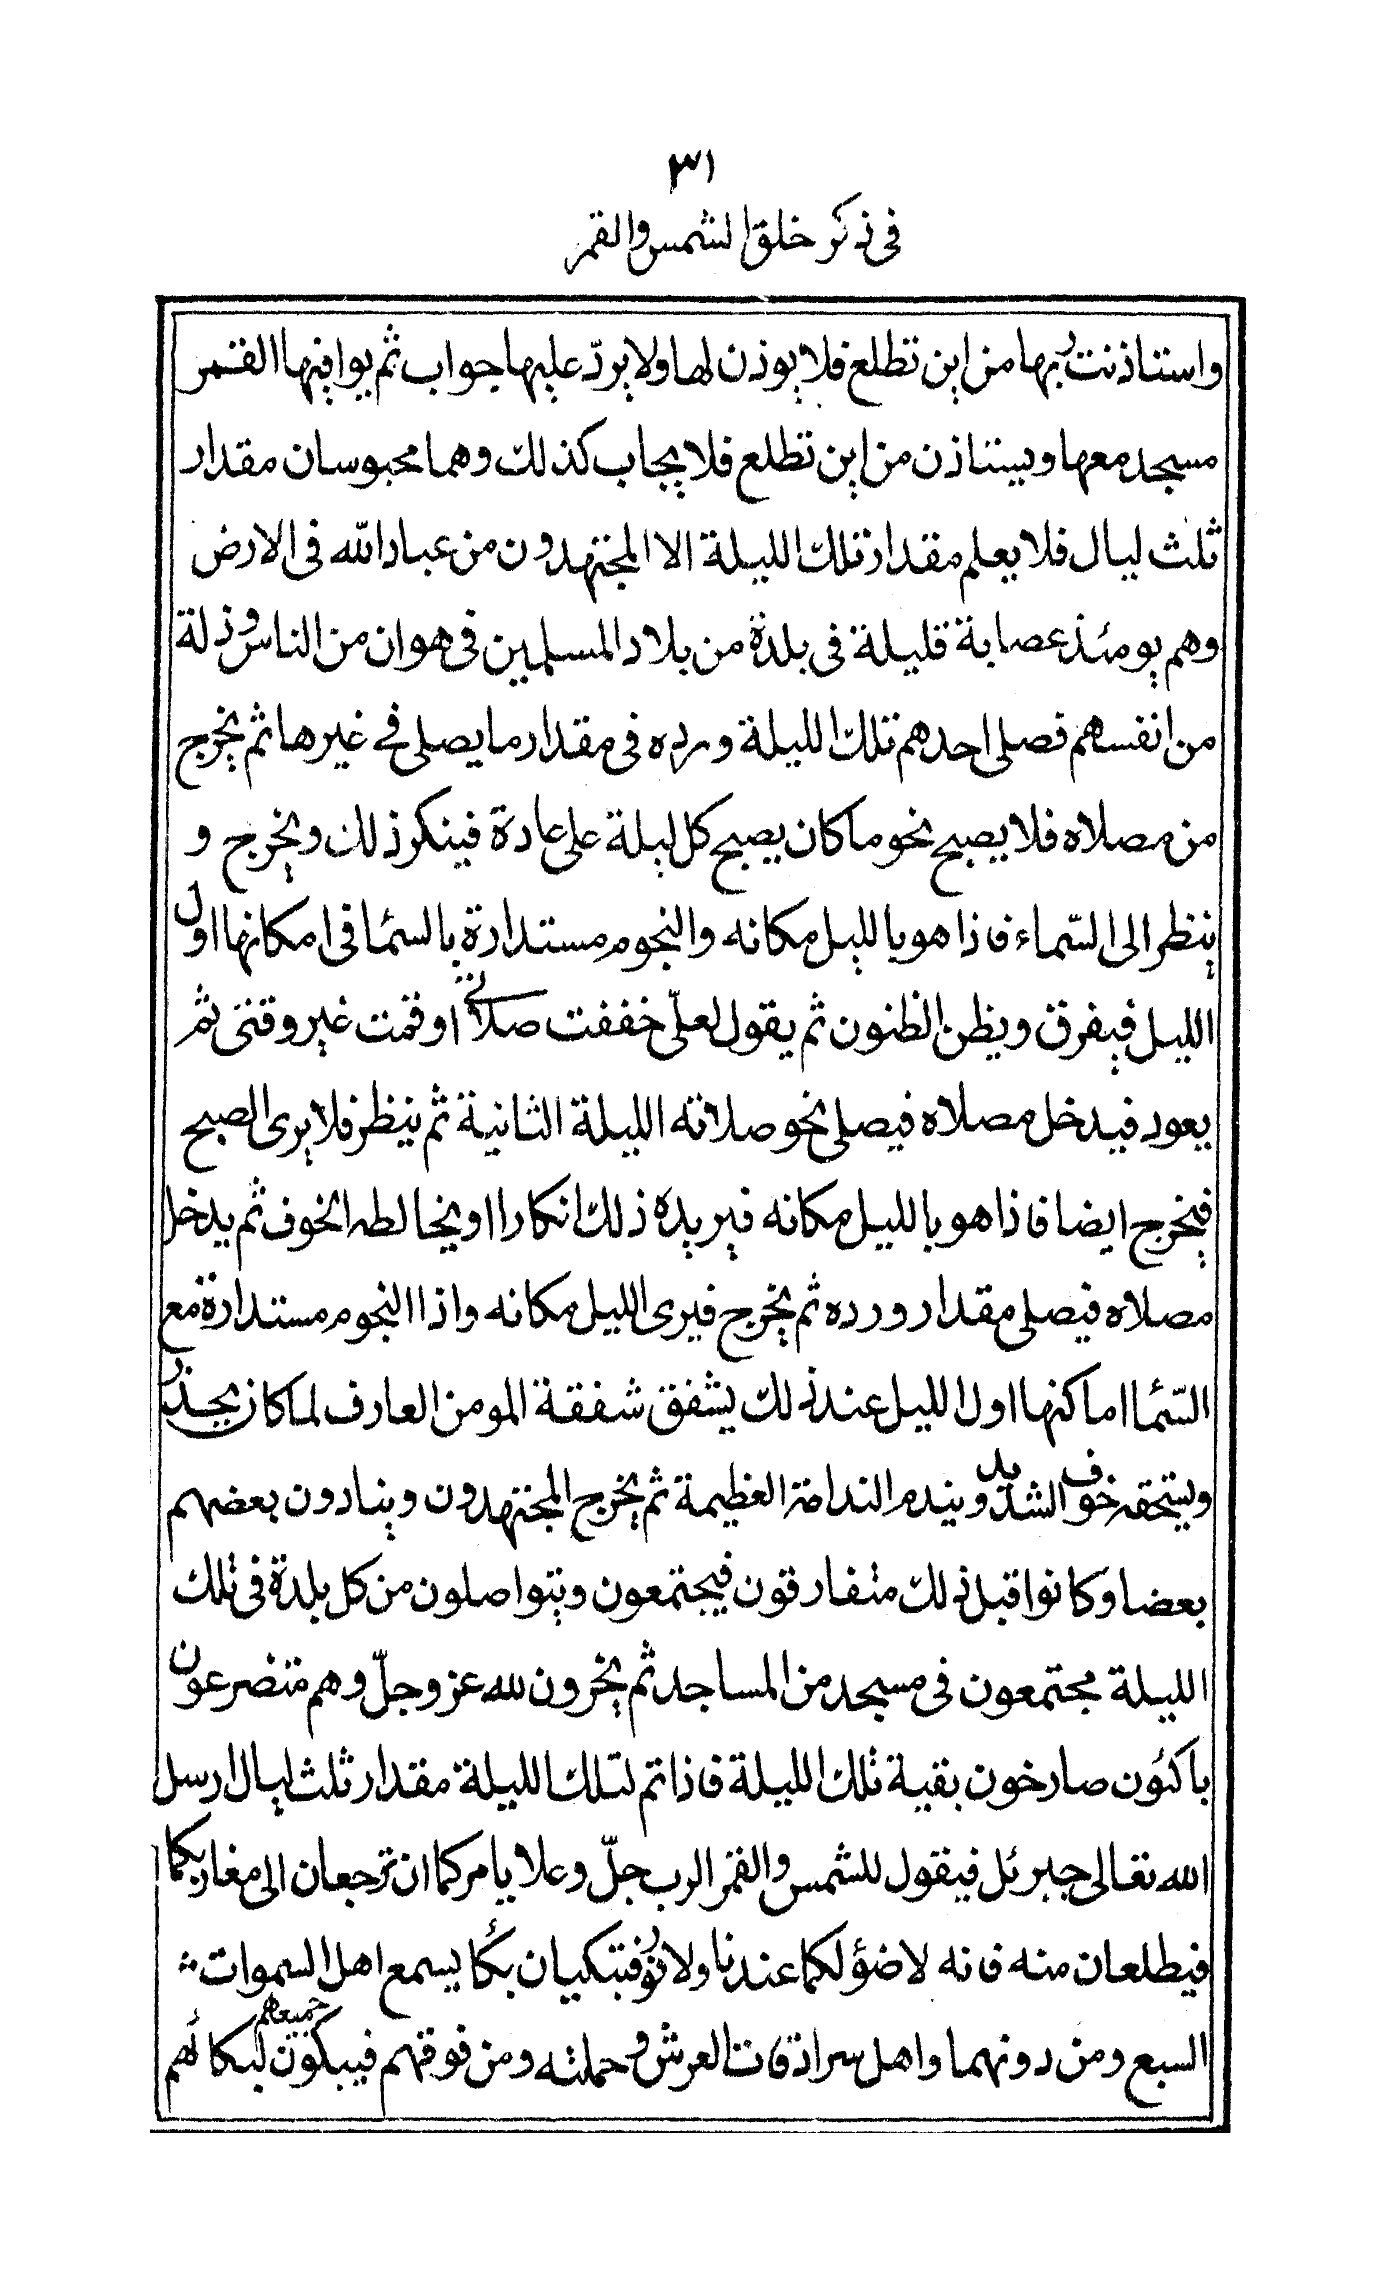 ٣١
في ذكر خلق الشمس والقمر
واستاذنت ربها من اين تطلع فلا يوذن لها ولا يردّ عليها جواب ثم يوافيها القمر
مسجد معها ويستاذن من اين تطلع فلا يجاب كذلك وهما محبوسان مقدار
ثلث ليال فلا يعلم مقدار تلك الليلة الا المجتهدون من عباد الله فى الارض
وهم يومئذ عصابة قليلة فى بلدة من بلاد المسلمين فى هوان من الناس وذلة
من انفسهم فصلى احدهم تلك الليلة ورده فى مقدار ما يصلى فى غيرها ثم يخرج
من مصلاه فلا يصبح نحو ما كان يصبح كل ليلة على عادة فينكر ذلك ويخرج و
ينظر الى السّماء فاذا هو بالليل مكانه والنجوم مستدارة بالسمٰا فى امكانها اول
الليل فيفرق ويظن الظنون ثم يقول لعلّى خففت صلاتى او قمت غير وقتى ثم
يعود فيدخل مصلاه فيصلى نحو صلاته الليلة الثانية ثم ينظر فلا يرى الصبح
فيخرج ايضا فاذا هو بالليل مكانه فيريده ذلك انكارا او يخالطه الخوف ثم يدخل
مصلاه فيصلى مقدار ورده ثم يخرج فيرى الليل مكانه واذا النجوم مستدارة مع
السّمٰا اماكنها اول الليل عند ذلك يشفق شفقة المومن العارف لما كان يحذر
ويستحقه خوف الشديد ويندم الندامة العظيمة ثم يخرج المجتهدون وينادون بعضهم
بعضا وكانوا قبل ذلك متفارقون فيجتمعون ويتواصلون من كل بلدة فى تلك
الليلة مجتمعون فى مسجد من المساجد ثم يخرون لله عز وجلّ وهم متضرعون
باكئون صارخون بقية تلك الليلة فاذا تم لتلك الليلة مقدار ثلث ليال ارسل
الله تعالى جبرئل فيقول للشمس والقمر الرب جلّ وعلا يامركما ان ترجعان الى مغاربكما
فيطلعان منه فانه لا ضؤ لكما عندنا ولا نور فتبكيان بكأ يسمع اهل السموات
السبع ومن دونهما واهل سرادقات العرش وحملته ومن فوقهم فيبكون جميعهم لبكائهم